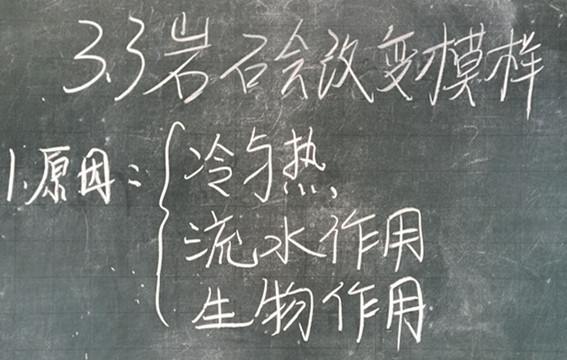 3.3岩石会改变模样
1.原因：
冷与热
流水作用
生物作用